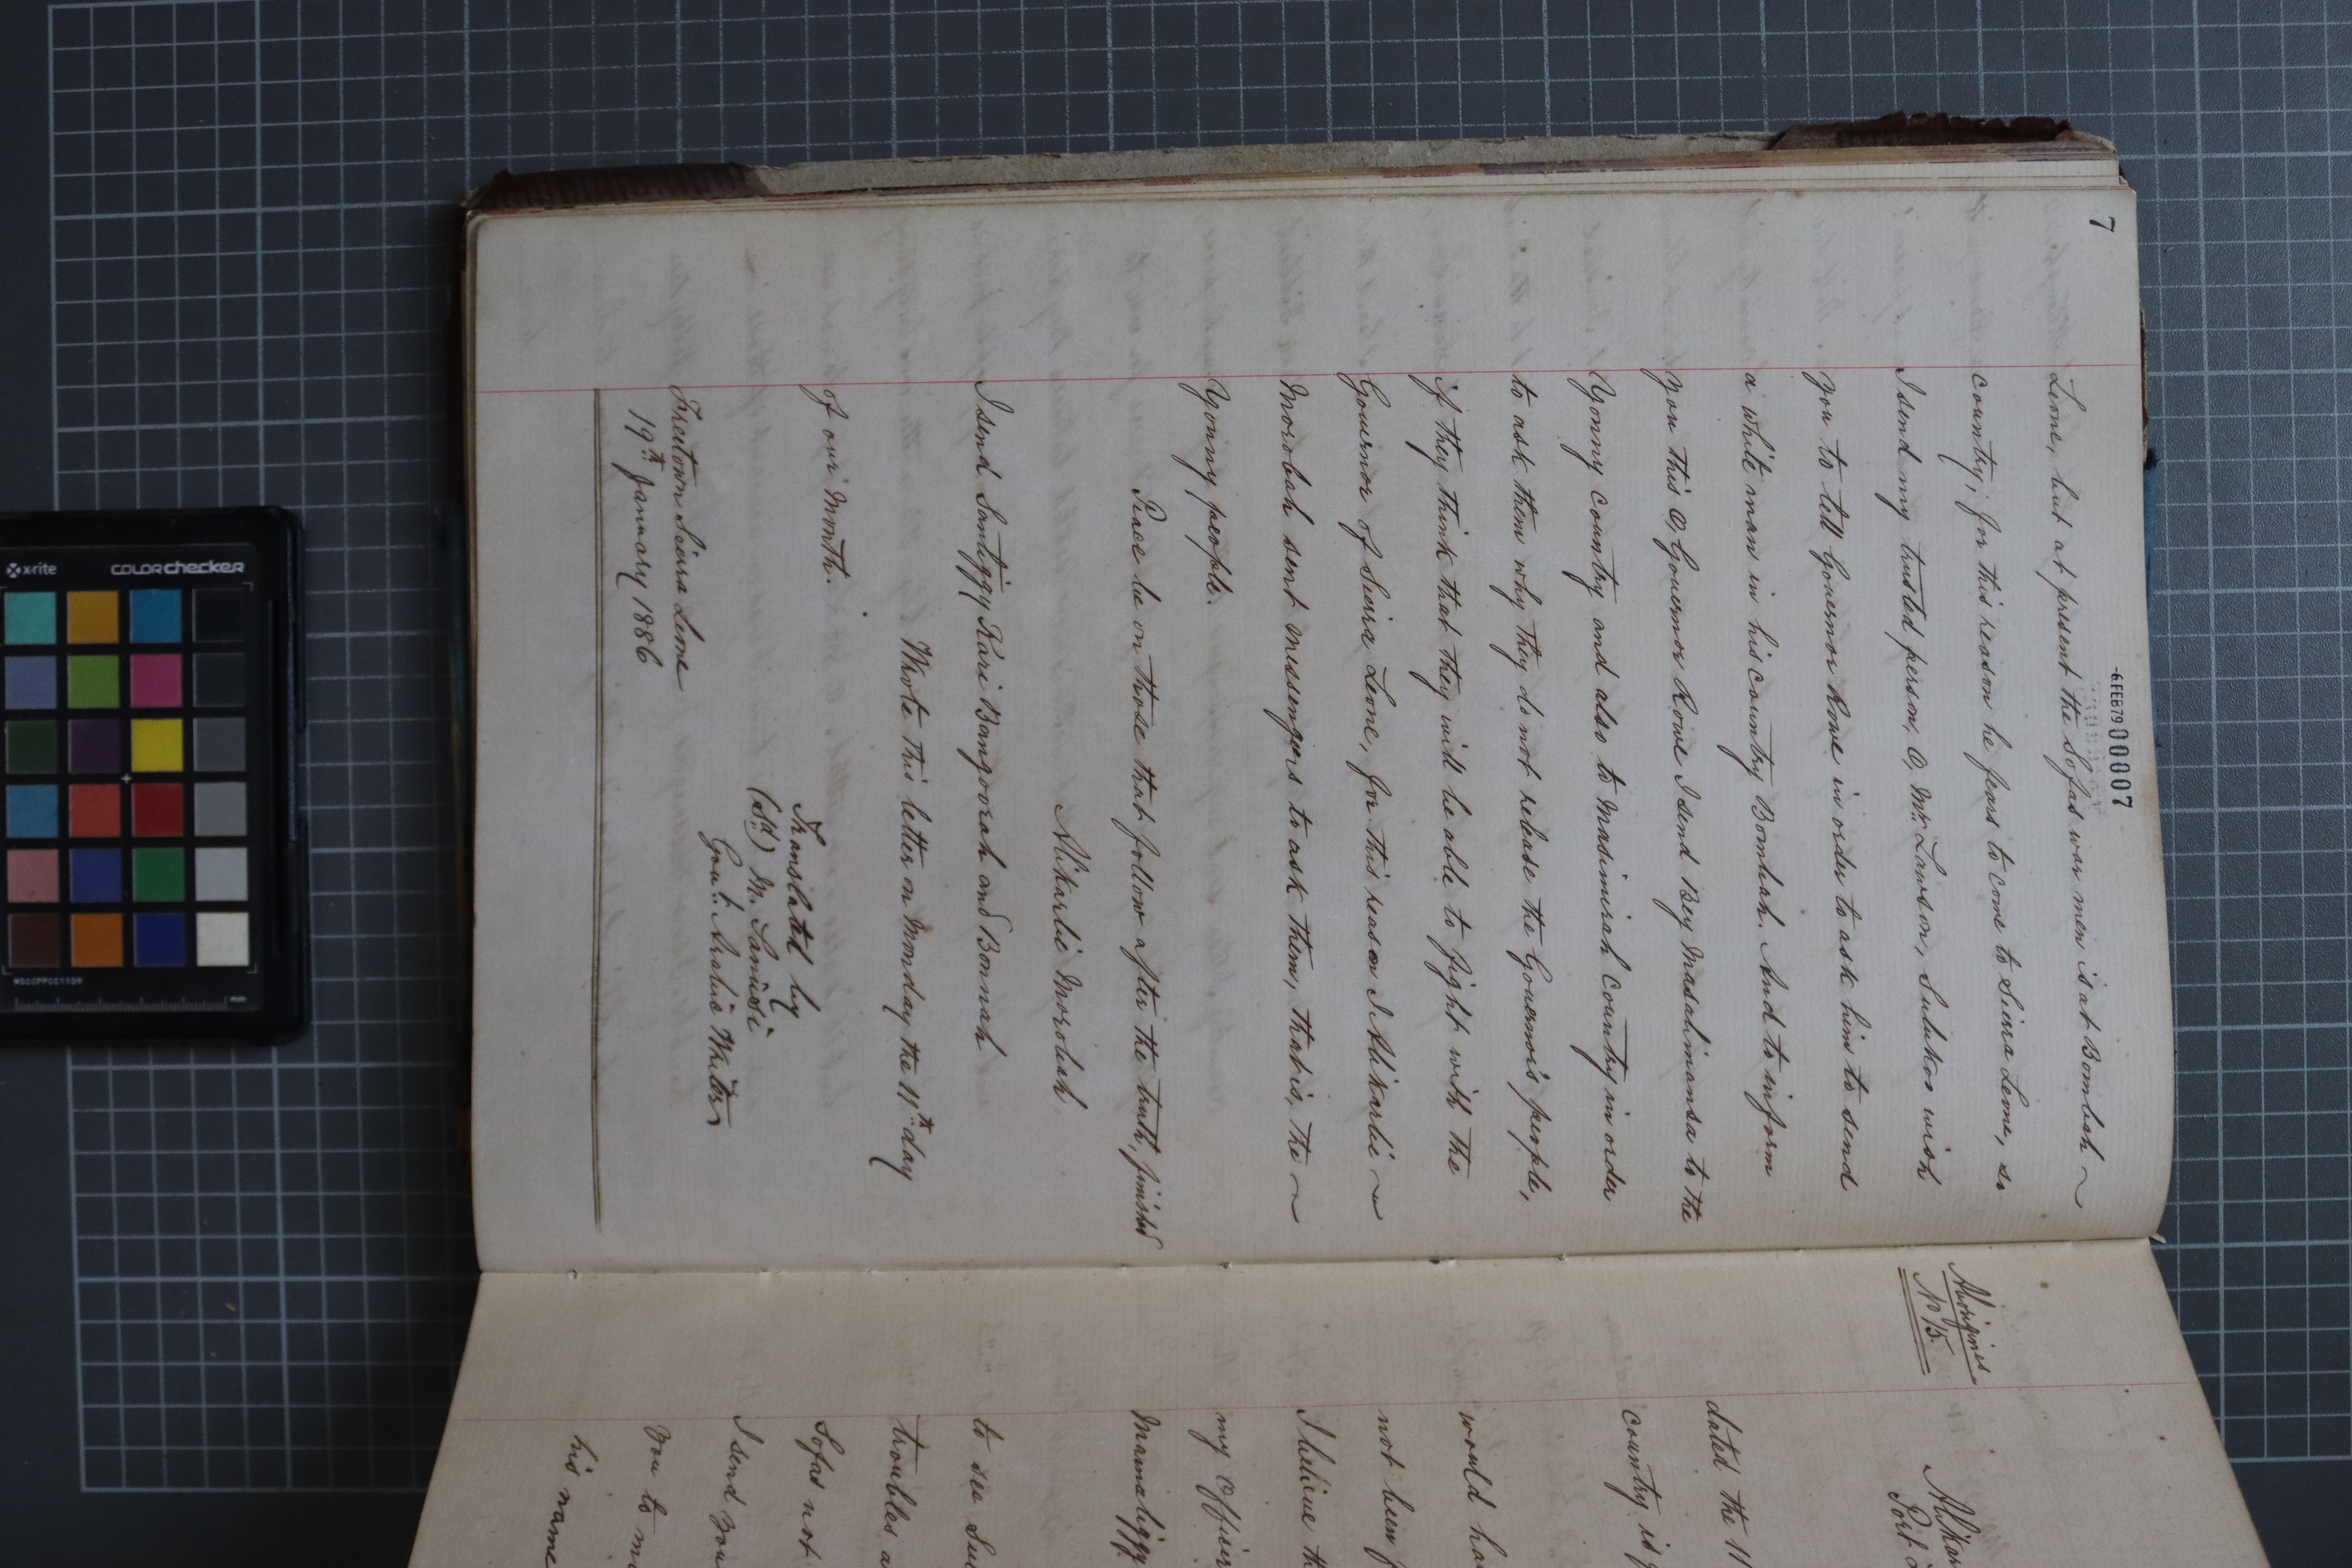 7
-6FEB79 00007
Leone, but at present the Sofas war men is at Bombah ~
country; for this reason he fears to come to Siera Leone, so
I send my trusted person, O, Mr. Lawson, Sulukoo wish
you to tell Governor Rowe in order to ask him to send
a white man in his country Bombah. And to inform
you this O, Governor Rowe I send Bey Masahmansa to the
Yonny country and also to Masimirah country in order
to ask them why they do not release the Governor's people,
if they think that they will be able to fight with the
Governor of Sierra Leone, for this reason I Alikarlie ~
Morobah sent messengers to ask them, that is, the ~
Yonny people.
Peace be on those that follow after the truth, finished
Alikarlie Morobah
I send Santiggy Kari Bangoorah and Bonnah
Wrote this letter on Monday the 11th day
of our month.
Translated by
(Sd) M. Sanusi
Govt. Arabic Writer
Freetown Sierra Leone
19th January 1886
Aborigines
No 15.
Alikar
Port L
dated the 11
country is
would ha
not been p
I believe th
my Officer
Mamaliggy
to see Su
troubles a
Sofas not
I send you
you to m
his name